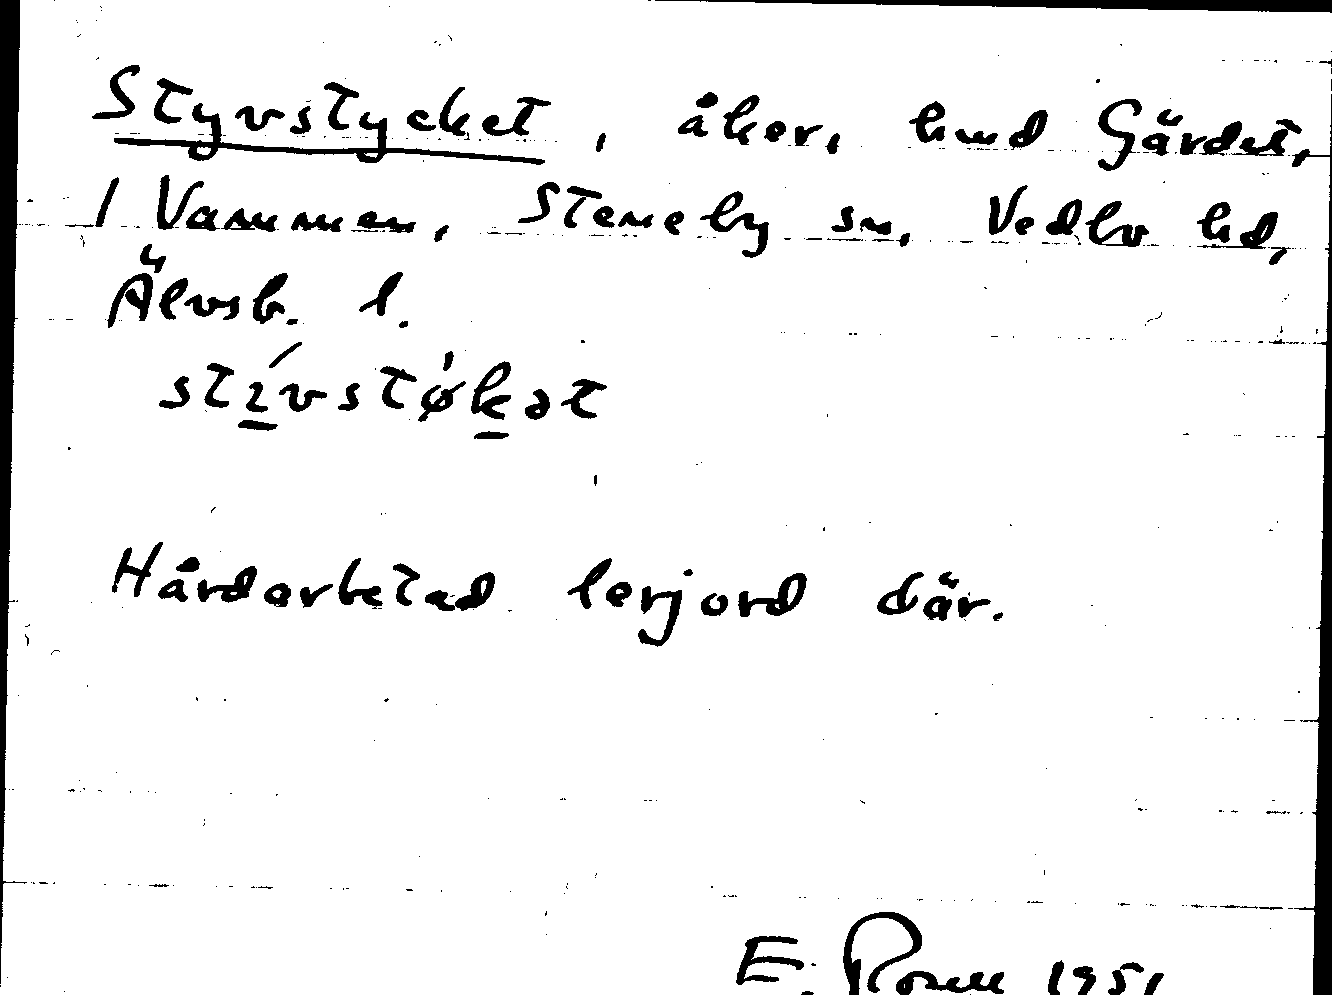 Styvstycket, åker, hmd Gärdet,
1 Vammen, Steneby sn, Vedbo hd,
Älvsb. l.
stívstø̀kət
Hårdarbetad lerjord där.
E. Rosell 1951